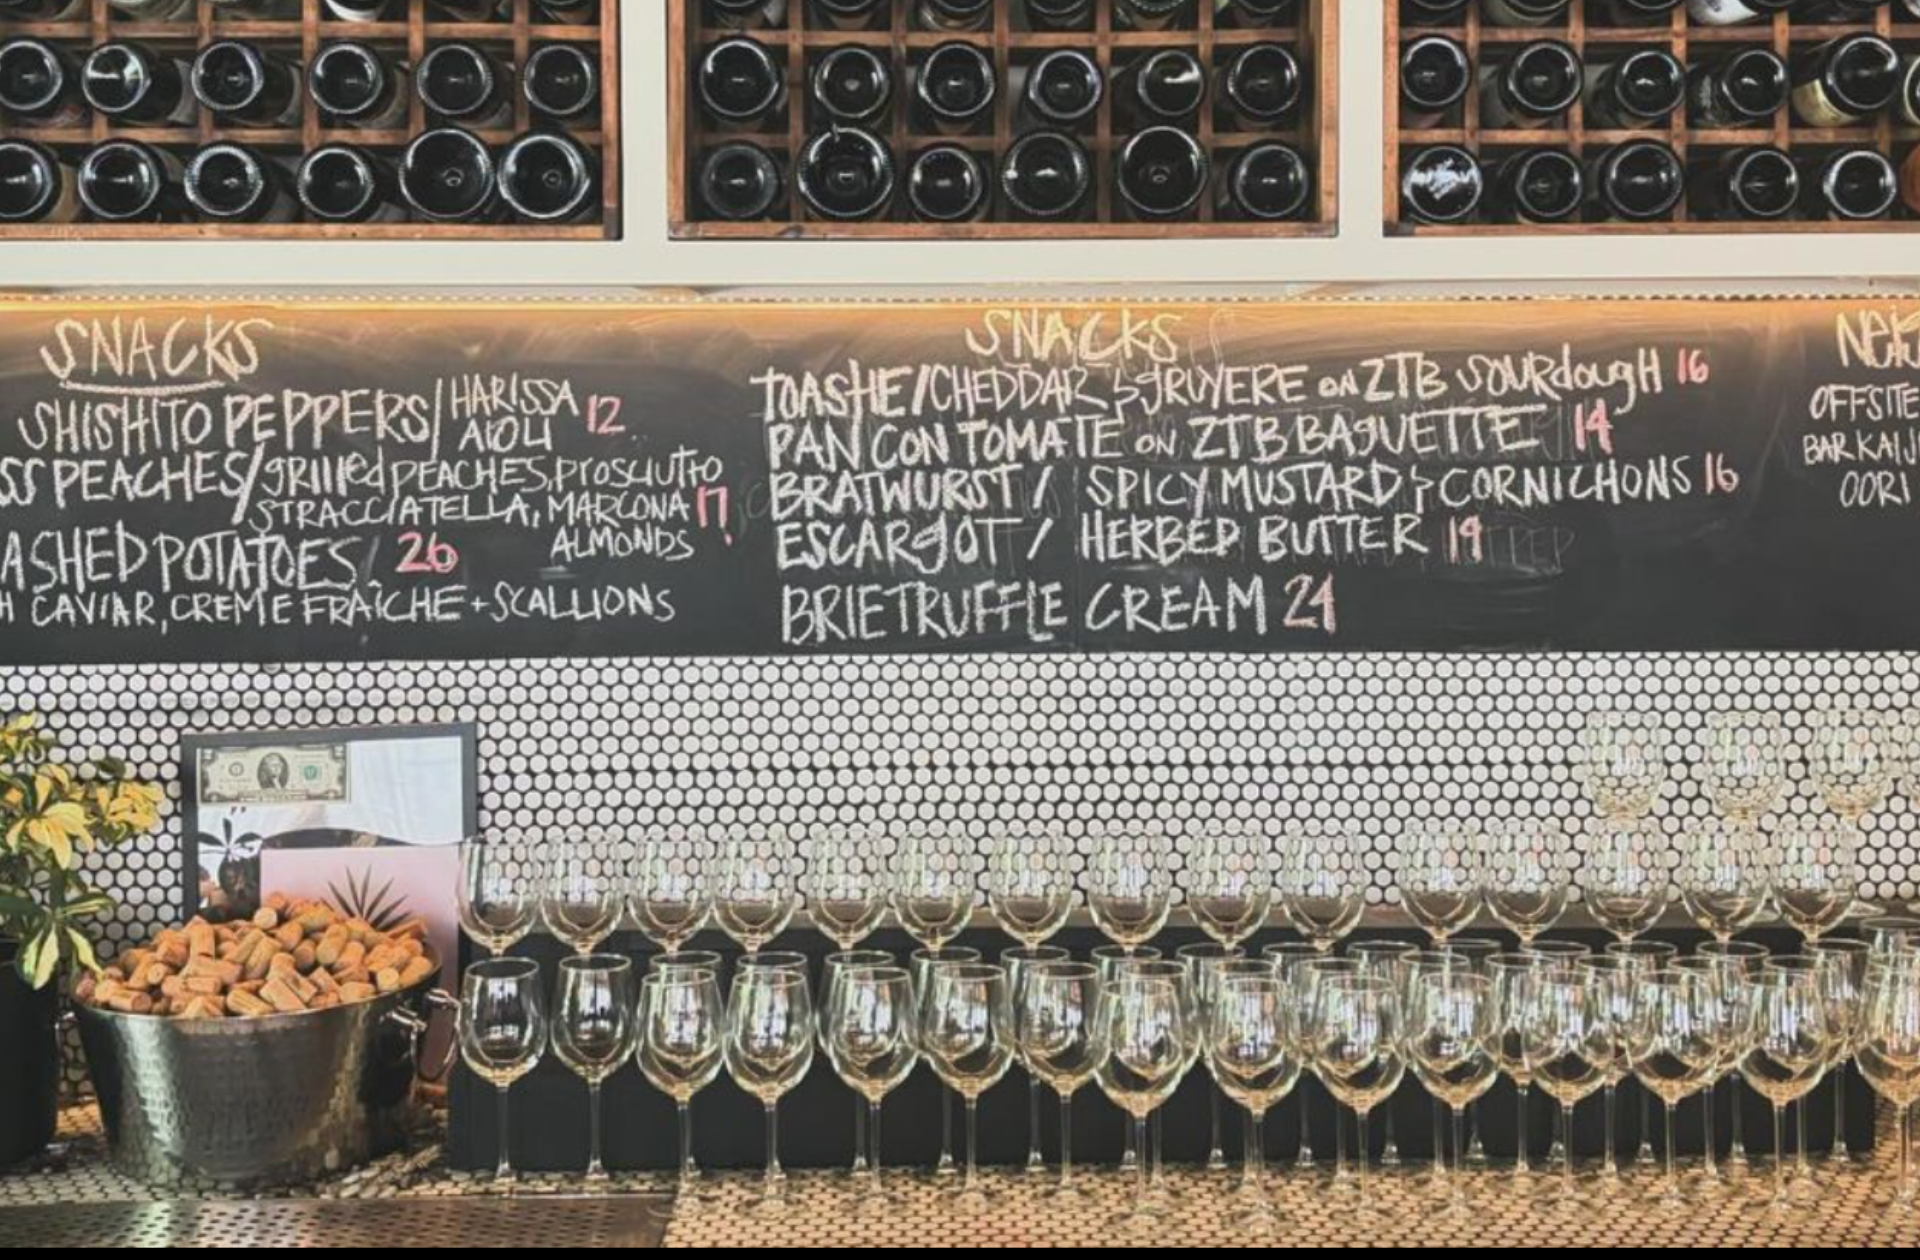 SNACKS
SHISHITO PEPPERS/ HARISSA AIOLI 12
SS PEACHES/ grilled PEACHES, Prosciutto
STRACCIATELLA, MARCONA 17
ALMONDS
ASHED POTATOES / 26
H CAVIAR, CREME FRAÎCHE + SCALLIONS
SNACKS
TOASTIE / CHEDDAR & GRUYERE ON ZTB SOURdougH 16
PAN CON TOMATE ON ZTB BAGUETTE 14
BRATWURST / SPICY MUSTARD & CORNICHONS 16
ESCARGOT / HERBED BUTTER 19
BRIE TRUFFLE CREAM
OFFSITE
BAR KAIJ
OORI